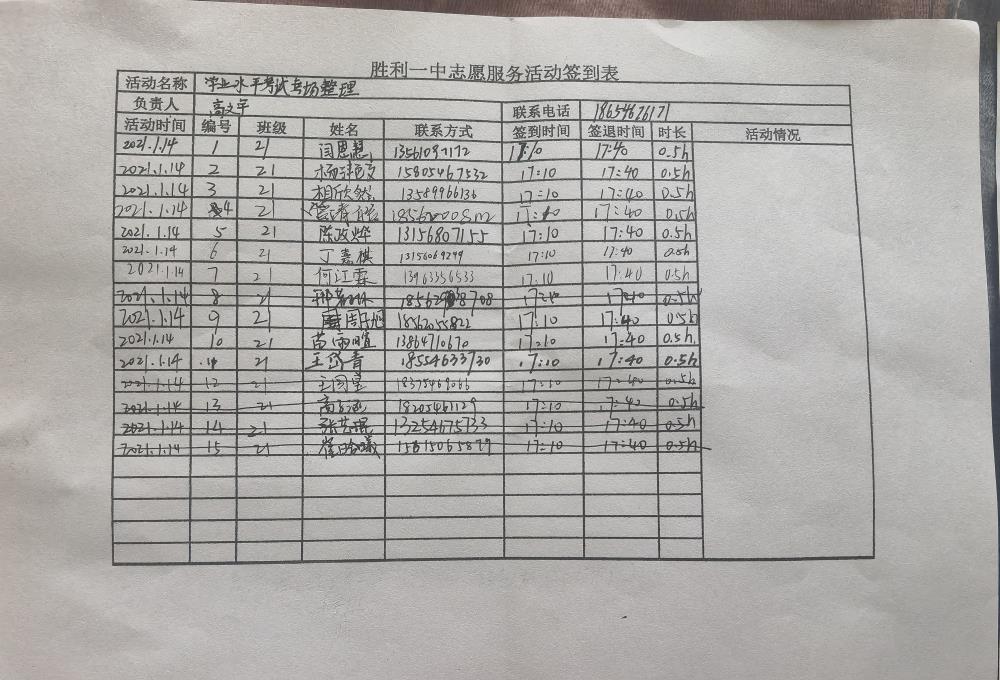 胜利一中志愿服务活动签到表
活动名称 学业水平考试考场整理
负责人 联系电话 18654676171
活动时间 编号 班级 姓名 联系方式 签到时间 签退时间 时长 活动情况
2021.1.14 1 21 闫思慧 17:10 17:40 0.5h
2021.1.14 2 21 15805467532 17:10 17:40 0.5h
2021.1.14 3 21 相欣然 13589966136 17:10 17:40 0.5h
2021.1.14 4 21 17:10 17:40 0.5h
2021.1.14 5 21 陈政烨 13156807155 17:10 17:40 0.5h
2021.1.14 6 21 丁嘉棋 13156069299 17:10 17:40 0.5h
2021.1.14 7 21 何江霖 13963356533 17:10 17:40 0.5h
2021.1.14 8 21 17:10 17:40 0.5h
2021.1.14 9 21 17:10 17:40 0.5h
2021.1.14 10 21 苗雨暄 13864710670 17:10 17:40 0.5h
2021.1.14 11 21 王岱青 18554633730 17:10 17:40 0.5h
2021.1.14 12 21 18375469066 17:10 17:40 0.5h
2021.1.14 13 21 18205461129 17:10 17:40 0.5h
2021.1.14 14 21 13254675733 17:10 17:40 0.5h
2021.1.14 15 21 17:10 17:40 0.5h